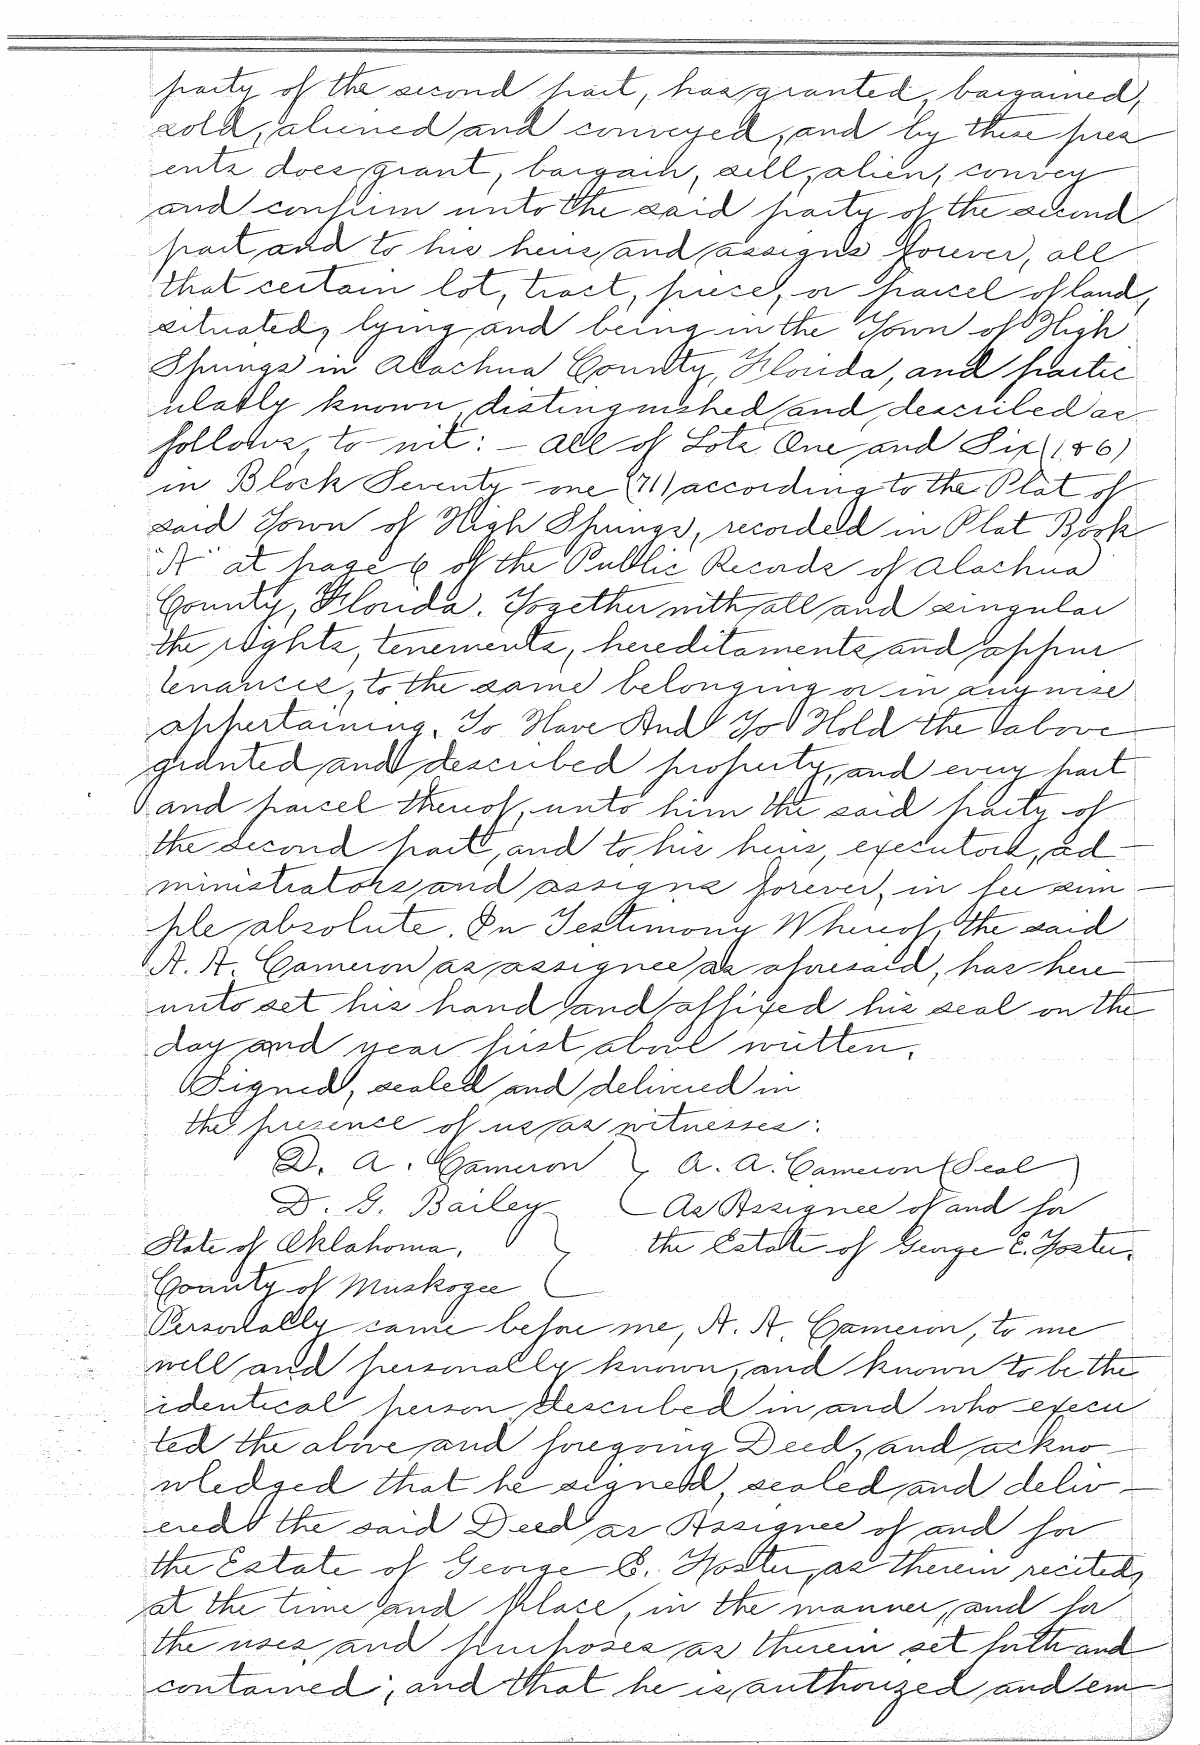 party of the second part, has granted, bargained,
sold, aliened and conveyed, and by these pres
ents does grant, bargain, sell, alien, convey
and confirm unto the said party of the second
part and to his heirs and assigns forever, all
that certain lot, tract, piece, or parcel of land,
situated, lying and being in the Town of High
Springs in Alachua County, Florida, and partic
ularly known, distinguished and described as
follows, to wit: - all of Lots One and Six (1 & 6)
in Block Seventy-one (71) according to the Plat of
said Town of High Springs, recorded in Plat Book
"A" at page 6 of the Public Records of Alachua
County, Florida. Together with all and singular
the rights, tenements, hereditaments and appur
tenances, to the same belonging or in anywise
appertaining. To Have And To Hold the above
granted and described property, and every part
and parcel thereof, unto him the said party of
the second part, and to his heirs, executors, ad-
ministrators and assigns forever, in fee sim-
ple absolute. In Testimony Whereof, the said
A. A. Cameron as assignee as aforesaid, has here
unto set his hand and affixed his seal on the
day and year first above written.
Signed, sealed and delivered in
the presence of us as witnesses:
D. A. Cameron } A. A. Cameron (Seal)
D. G. Bailey { As Assignee of and for
State of Oklahoma, } the Estate of George E. Foster.
County of Muskogee
Personally came before me, A. A. Cameron, to me
well and personally known, and known to be the
identical person described in and who execu
ted the above and foregoing Deed, and ackno-
wledged that he signed, sealed and deliv-
ered the said Deed as Assignee of and for
the Estate of George E. Foster, as therein recited,
at the time and place, in the manner, and for
the uses and purposes as therein set forth and
contained; and that he is authorized and em-